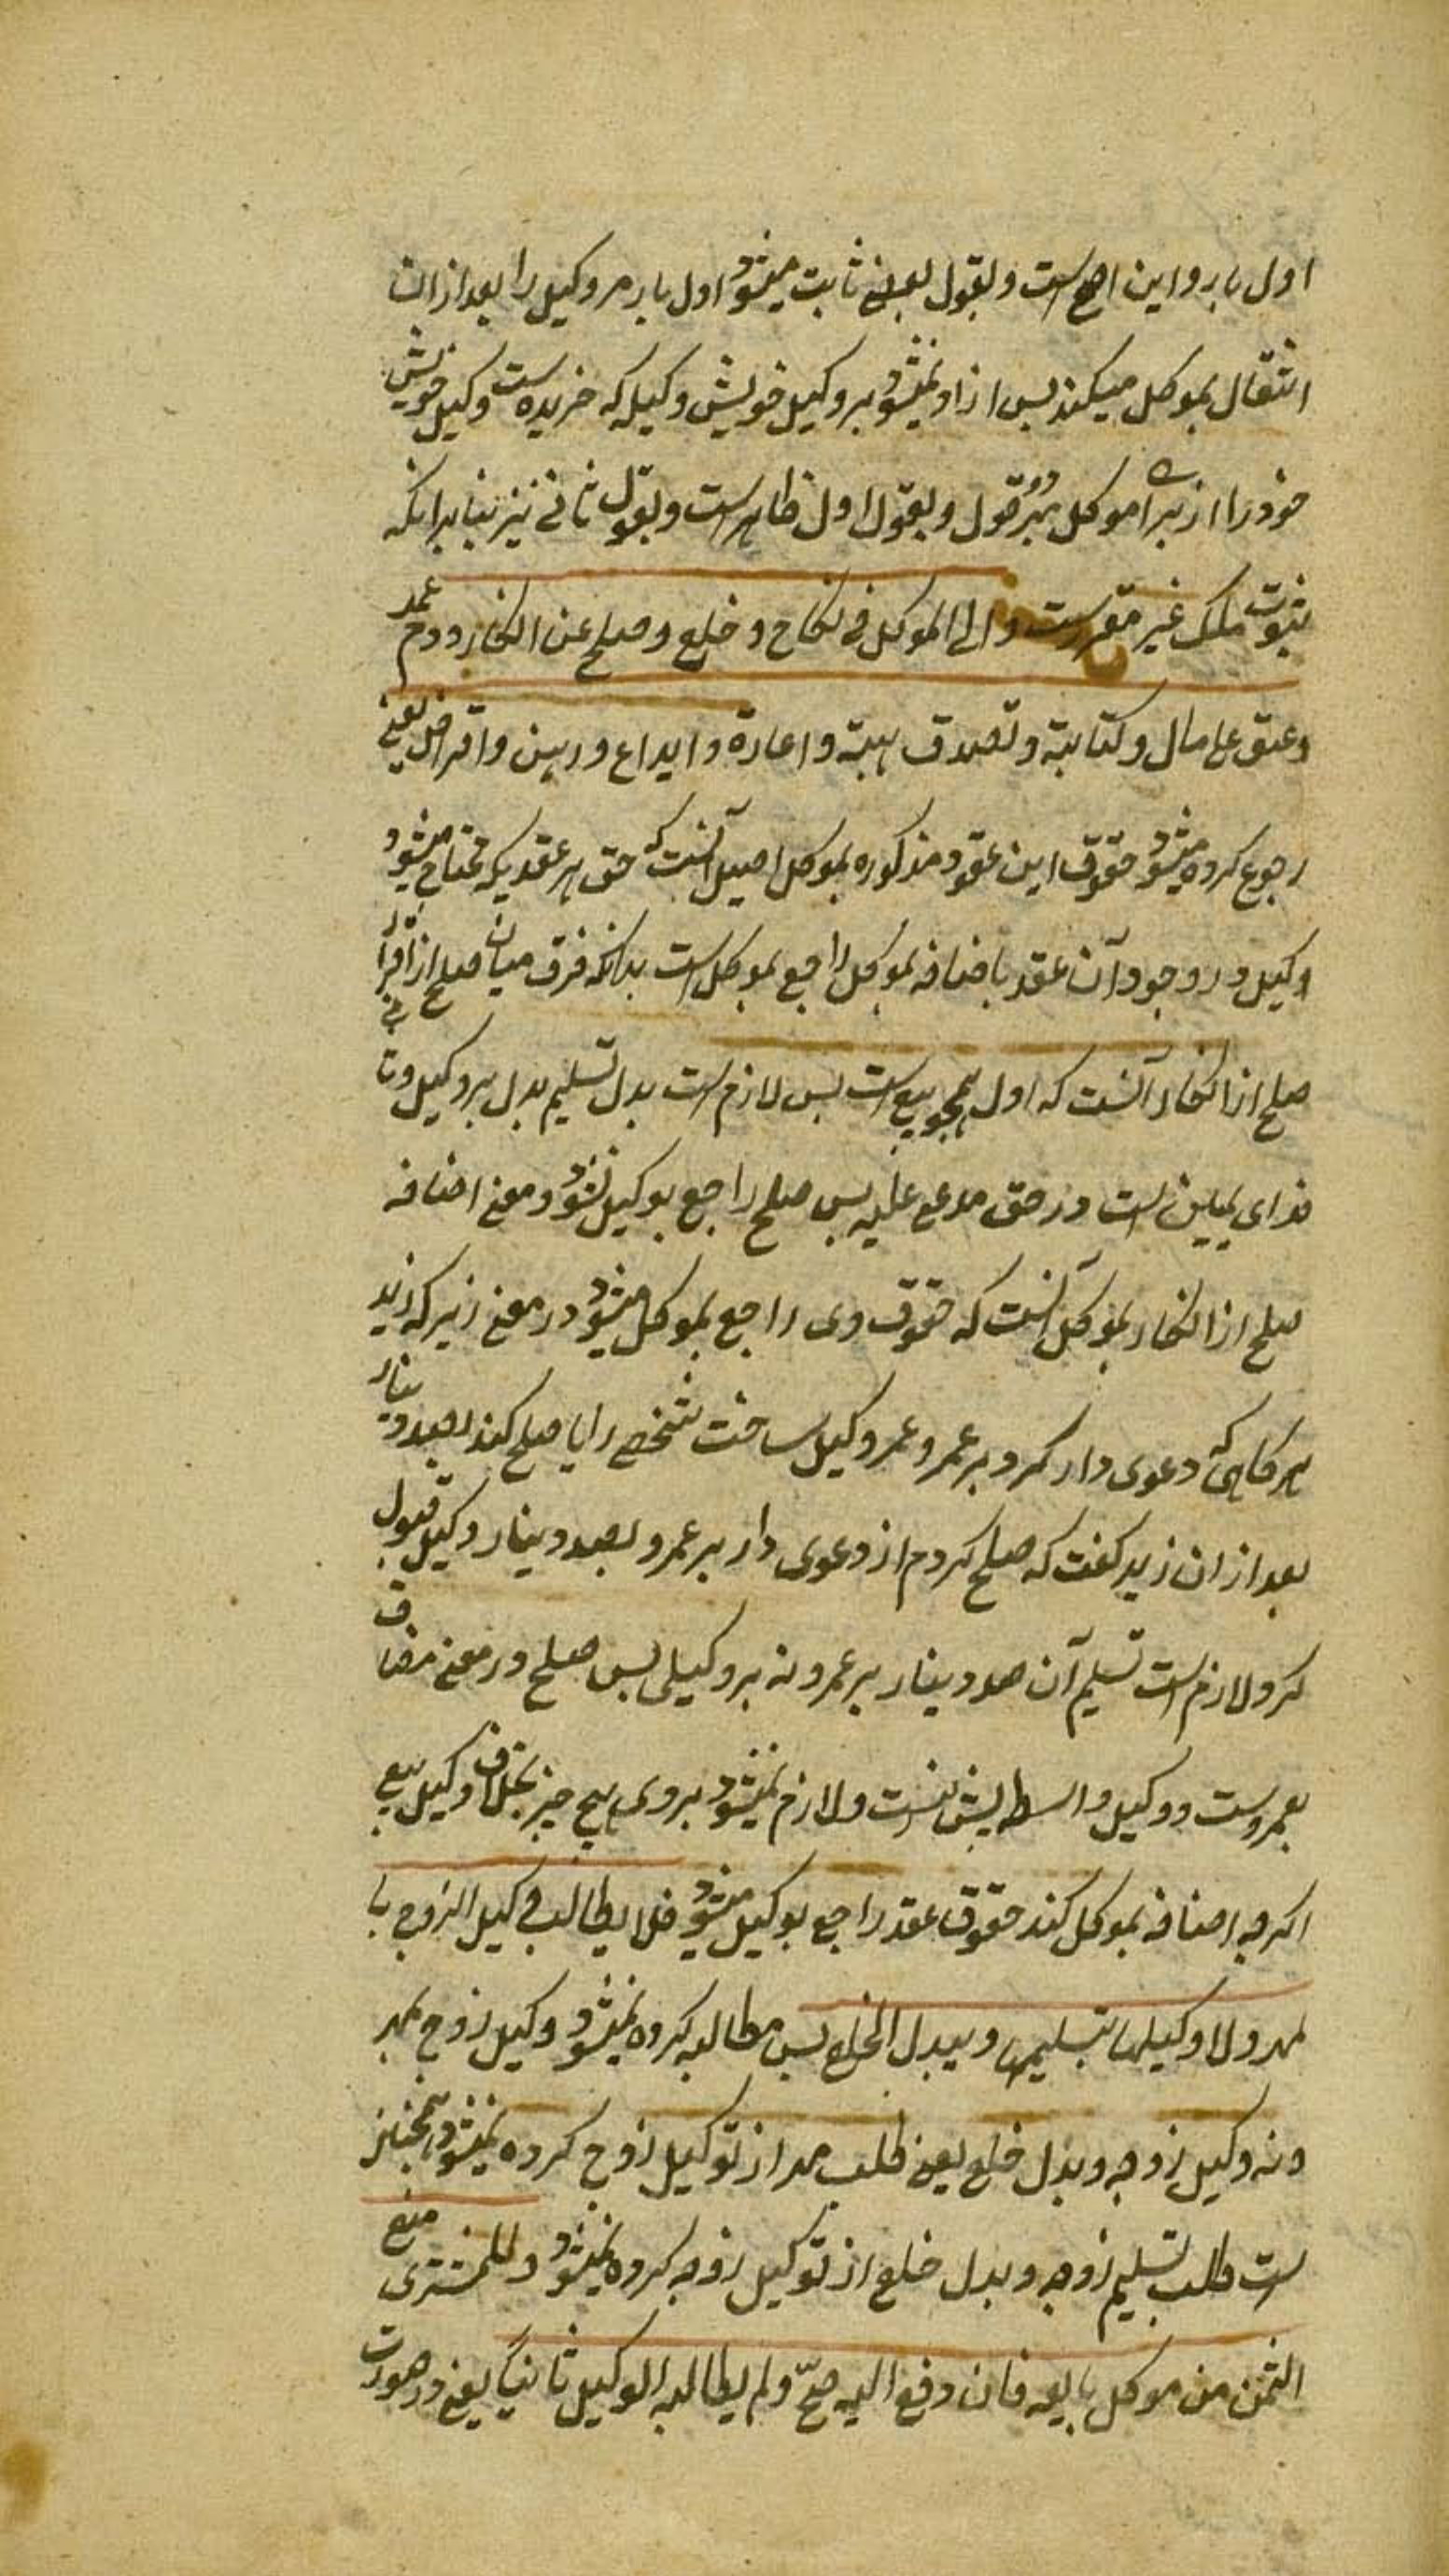 اول بار و این اصح است و بقول بعضی ثابت میشود اول بار مر وکیل را بعد ازان
انتقال بموکل میکند پس ازاد نمیشود بر وکیل خویش وکیل که خریده است وکیل خویش
خود را از برای موکل بهر دو قول و بقول اول ظاهر است و بقول ثانی نیز بنا برانکه
ثبوت ملک غیر مقرر است و الی الموکل فی نکاح و خلع و صلح عن انکار و دم عمد
و عتق علی مال و کتابة و تصدق هبة و اعارة و ایداع و رهن و اقراض یعنی
رجوع کرده میشود حقوق این عقود مذکوره بموکل اصیل آنست که حق هر عقدیکه محتاج میشود
وکیل در وجود آن عقد باضافه بموکل راجع بموکل است بدانکه فرق میان صلح از اقرار
صلح از انکار آنست که اول همچو بیع است پس لازم است بدل تسلیم بدل بر وکیل و ثانی
فدای یمین است در حق مدعی علیه پس صلح راجع بوکیل نشود و معنی اضافه
صلح از انکار بموکل آنست که حقوق وی راجع بموکل میشود در معنی زیرکه زید
هرکاهی که دعوی دار کرد بر عمرو و عمرو وکیل ساخت شخصی را یا صلح کند بصد دینار
بعد ازان زید کفت که صلح کردم از دعوی دار بر عمرو بصد دینار وکیل قبول
کرد لازم است تسلیم آن صد دینار بر عمرو نه بر وکیلی پس صلح در معنی مضاف
بعمروست و وکیل واسطه بیش نیست و لازم نمیشود بر وی هیچ چیز بخلاف وکیل بیع
اکرچه اضافه بموکل کند حقوق عقد راجع بوکیل میشود فلا یطالب وکیل الزوج با
لمهر و لا وکیلها بتسلیمها و ببدل الخلع پس مطالبه کرده نمیشود وکیل زوج بمهر
و نه وکیل زوجه و بدل خلع یعنی طلب مهر از توکیل زوج کرده نمیشود همچنین
است طلب تسلیم زوجه و بدل خلع از توکیل زوجه کرده نمیشود و للمشتری منع
الثمن من موکل بایعه فان دفع الیه صحّ و لم یطالبه الوکیل ثانیاً یعنی در صورت